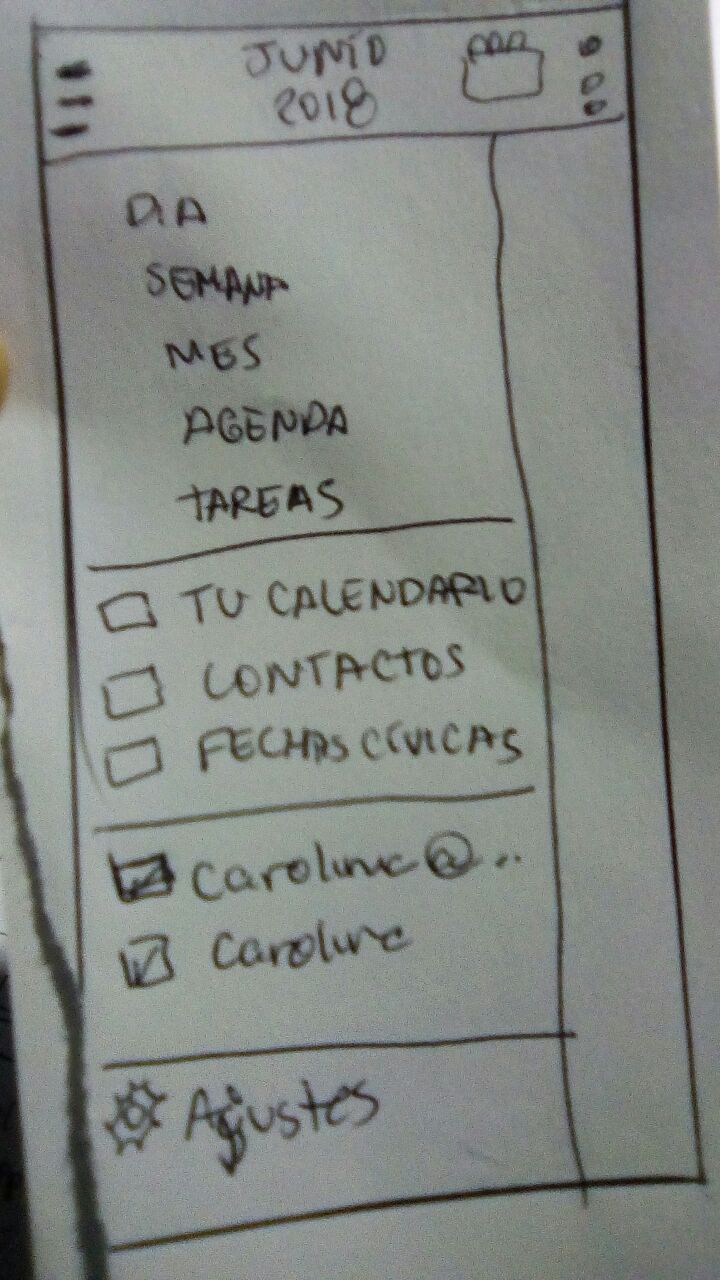 JUNIO
2018
DIA
SEMANA
MES
AGENDA
TAREAS
TU CALENDARIO
CONTACTOS
FECHAS CÍVICAS
Caroline@..
Caroline
Ajustes